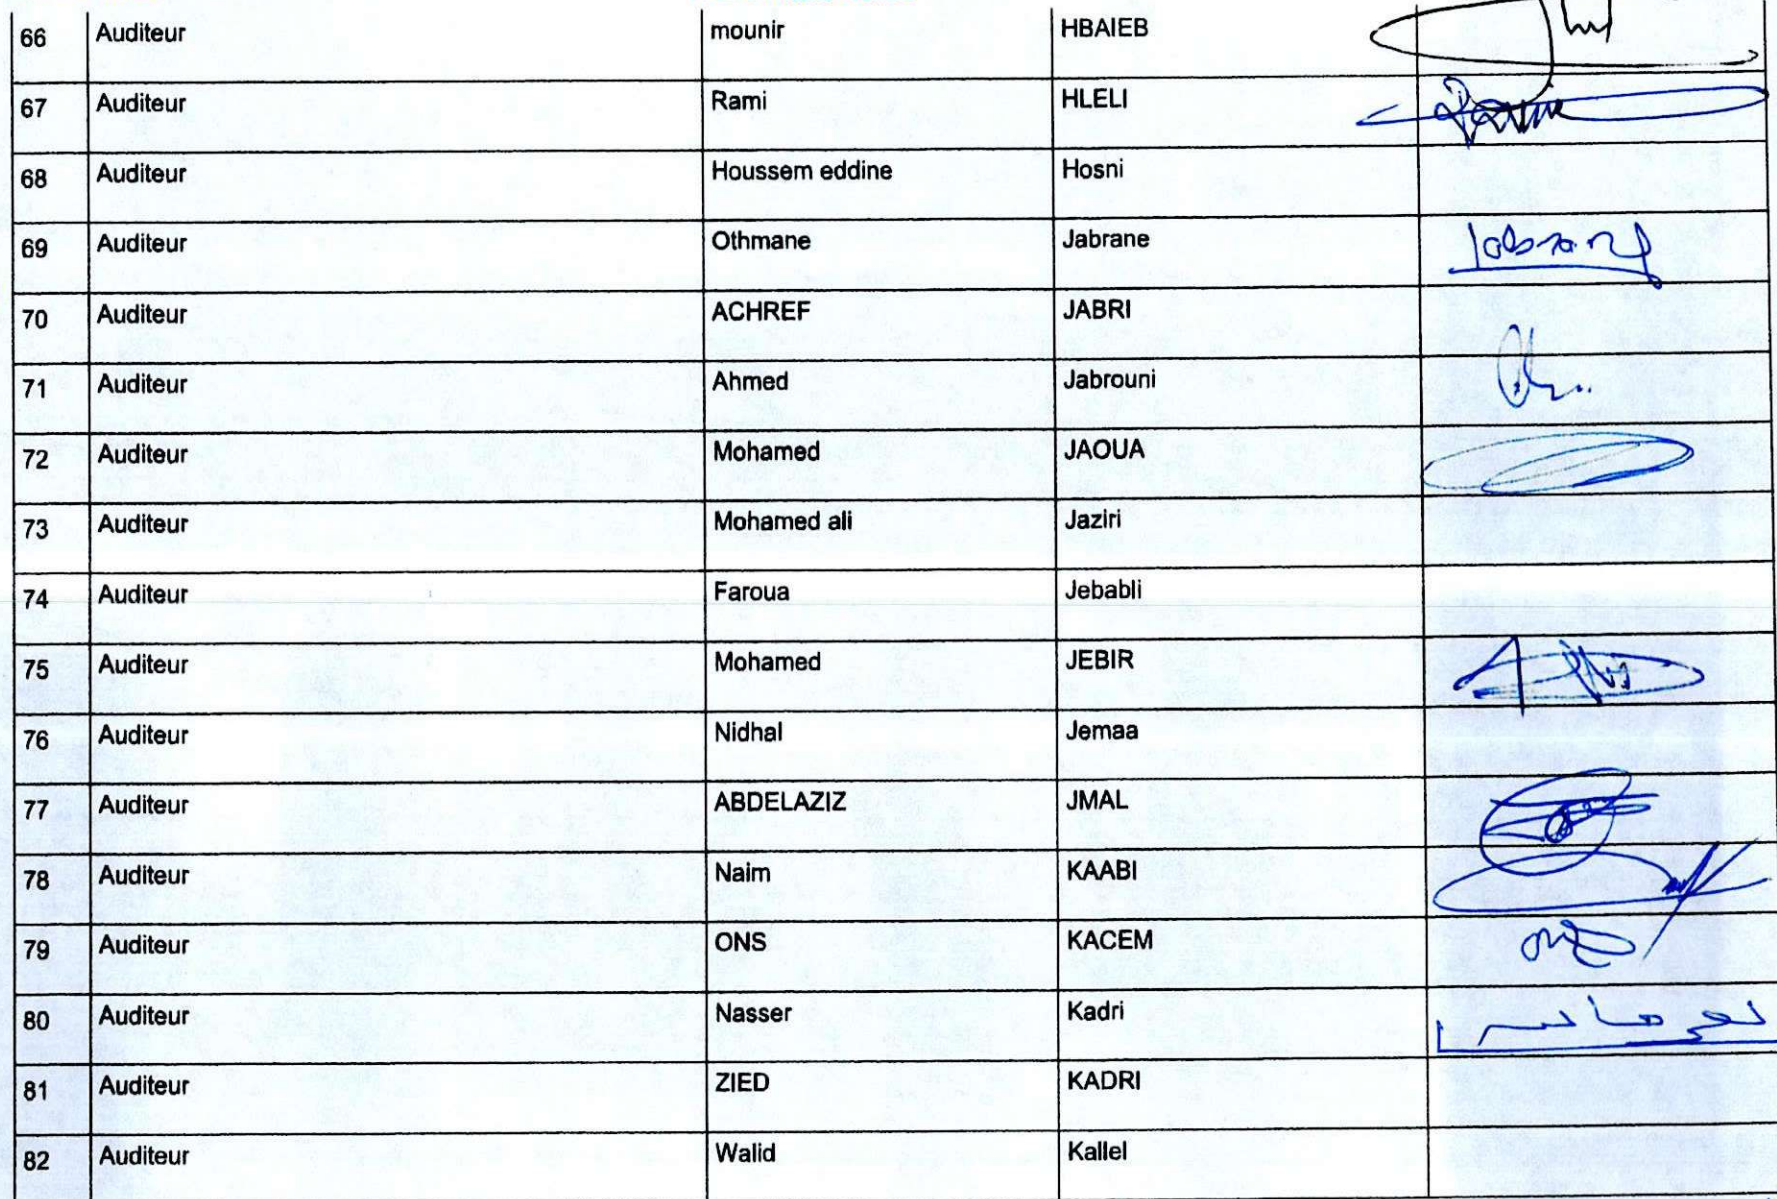 66 Auditeur mounir HBAIEB
67 Auditeur Rami HLELI
68 Auditeur Houssem eddine Hosni
69 Auditeur Othmane Jabrane
70 Auditeur ACHREF JABRI
71 Auditeur Ahmed Jabrouni
72 Auditeur Mohamed JAOUA
73 Auditeur Mohamed ali Jaziri
74 Auditeur Faroua Jebabli
75 Auditeur Mohamed JEBIR
76 Auditeur Nidhal Jemaa
77 Auditeur ABDELAZIZ JMAL
78 Auditeur Naim KAABI
79 Auditeur ONS KACEM
80 Auditeur Nasser Kadri
81 Auditeur ZIED KADRI
82 Auditeur Walid Kallel